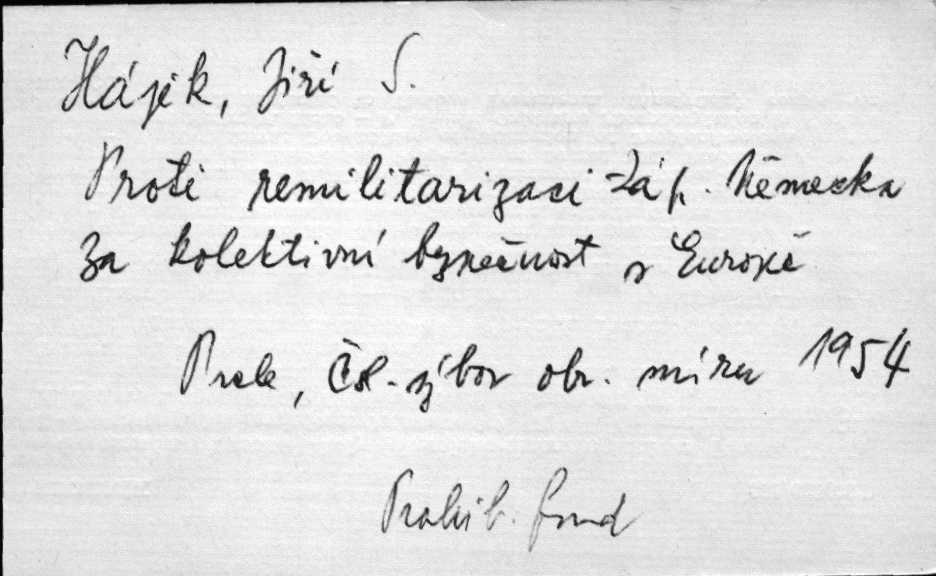 Hájek, Jiří S.
Proti remilitarizaci záp. Německa
za kolektivní bezpečnost v Evropě
Praha, Čsl. výbor obr. míru 1954
Prohib. fond